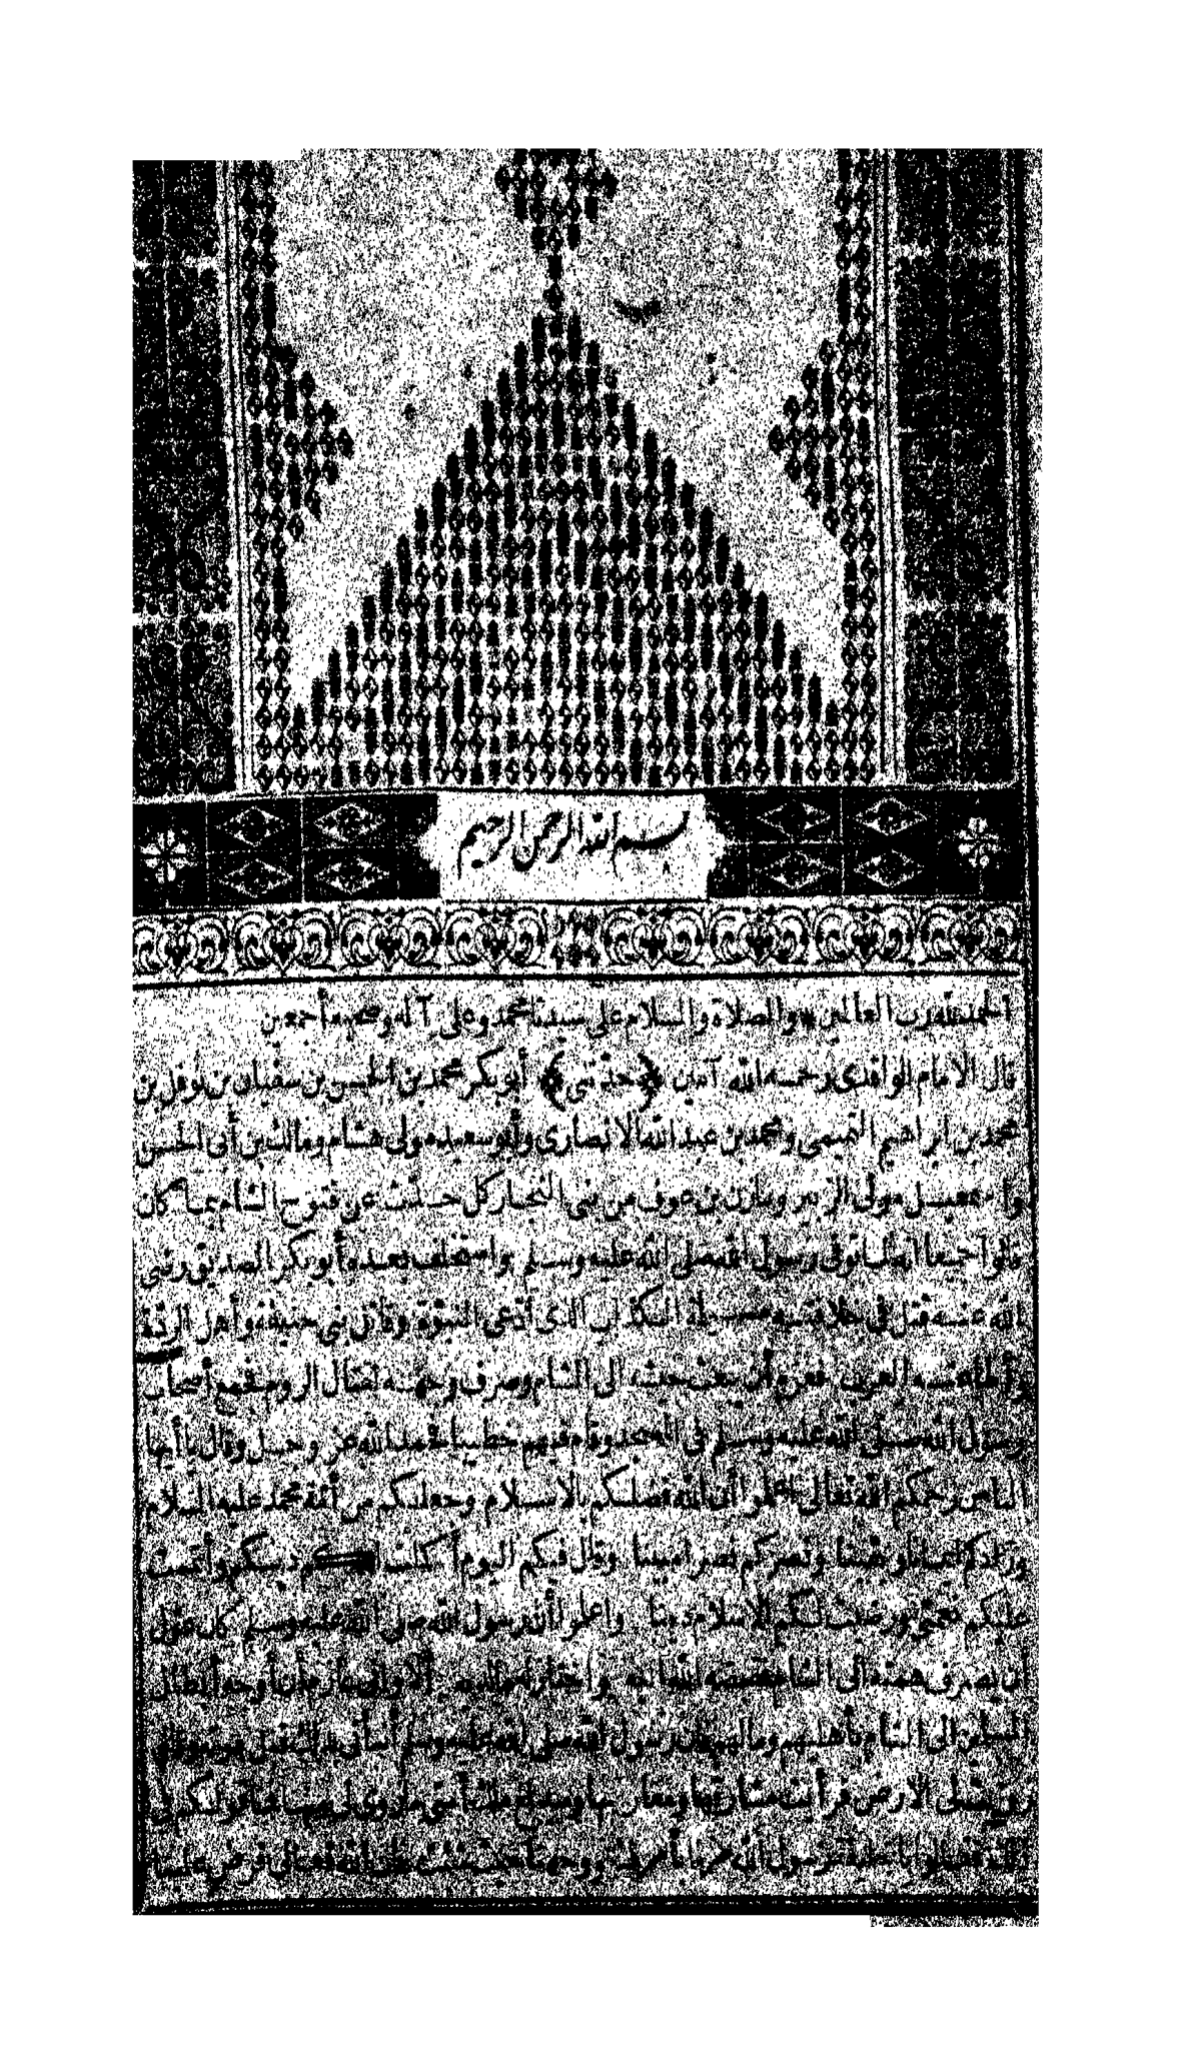 بسم الله الرحمن الرحيم
الحمد لله رب العالمين والصلاة والسلام على سيدنا محمد وعلى آله وصحبه أجمعين
قال الامام الواقدى رحمه الله آمين (حدثنى) أبو بكر محمد بن الحسن بن سفيان بن نوفل بن
محمد بن ابراهيم التيمى ومحمد بن عبد الله الانصارى وأبو سعيد مولى هشام ومالك بن أبى الحسن
مولى الزبير ومازن بن عوف من بنى النجار كل حدث عن فتوح الشام بما كان
قالوا جميعا لما توفى رسول الله صلى الله عليه وسلم واستخلف بعده أبو بكر الصديق رضى
الله عنه قتل فى خلافته مسيلمة الكذاب الذى ادعى النبوة وقاتل بنى حنيفة وأهل الردة
وأطاعته العرب فعزم أن يبعث جيشه الى الشام وصرف وجهه لقتال الروم فجمع أصحاب
رسول الله صلى الله عليه وسلم فى المسجد وقام فيهم خطيبا فحمد الله عز وجل وقال يا أيها
الناس رحمكم الله تعالى اعلموا أن الله فضلكم بالاسلام وجعلكم من أمة محمد عليه السلام
وزادكم ايمانا ويقينا ونصركم نصرا مبينا وقال فيكم اليوم أكملت لكم دينكم وأتممت
عليكم نعمتى ورضيت لكم الاسلام دينا واعلموا أن رسول الله صلى الله عليه وسلم كان عول
أن يصرف همته الى الشام فقبضه الله اليه واختار له ما لديه ألا وانى عازم أن أوجه أبطال
المسلمين الى الشام بأهليهم ومالهم فان رسول الله صلى الله عليه وسلم أنبأنى بذلك قبل موته وقال
زويت لى الارض فرأيت مشارقها ومغاربها وسيبلغ ملك أمتى ما زوى لى منها فما قولكم فى
ذلك فقالوا يا خليفة رسول الله مرنا بأمرك ووجهنا حيث شئت فان الله تعالى فرض علينا